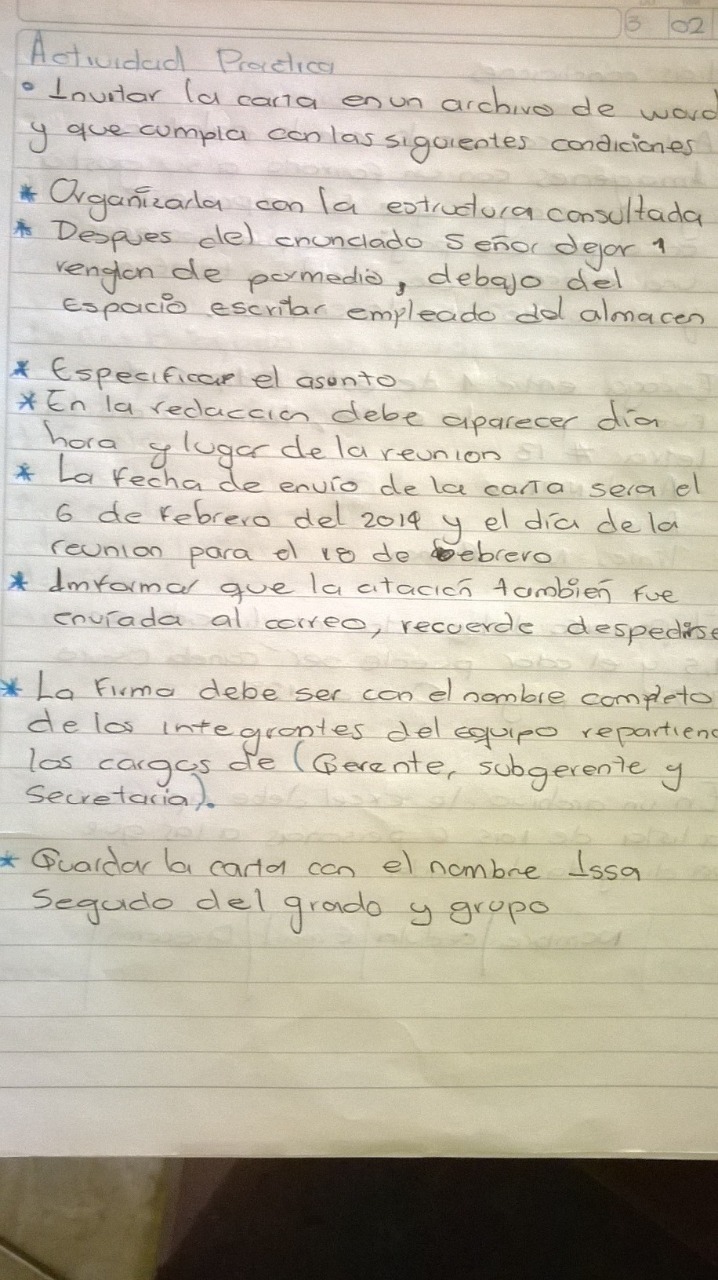 3 02
Actividad Practica
• Invitar la carta en un archivo de word
y que cumpla con las siguientes condiciones
* Organizada con la estructura consultada
* Despues del enunciado Señor dejar 1
renglon de pormedio, debajo del
Espacio escribar empleado del almacen
* Especificar el asunto
* En la redaccion debe aparecer dia
hora y lugar de la reunion
* La fecha de envio de la carta sera el
6 de febrero del 2014 y el día de la
reunion para el 18 de febrero
* Imformar que la citación tambien fue
enviada al correo, recuerde despedirse
* La firma debe ser con el nombre completo
de los integrantes del equipo repartiend
los cargos de (Gerente, subgerente y
Secretaria).
* Guardar la carta con el nombre Issa
Seguido del grado y grupo